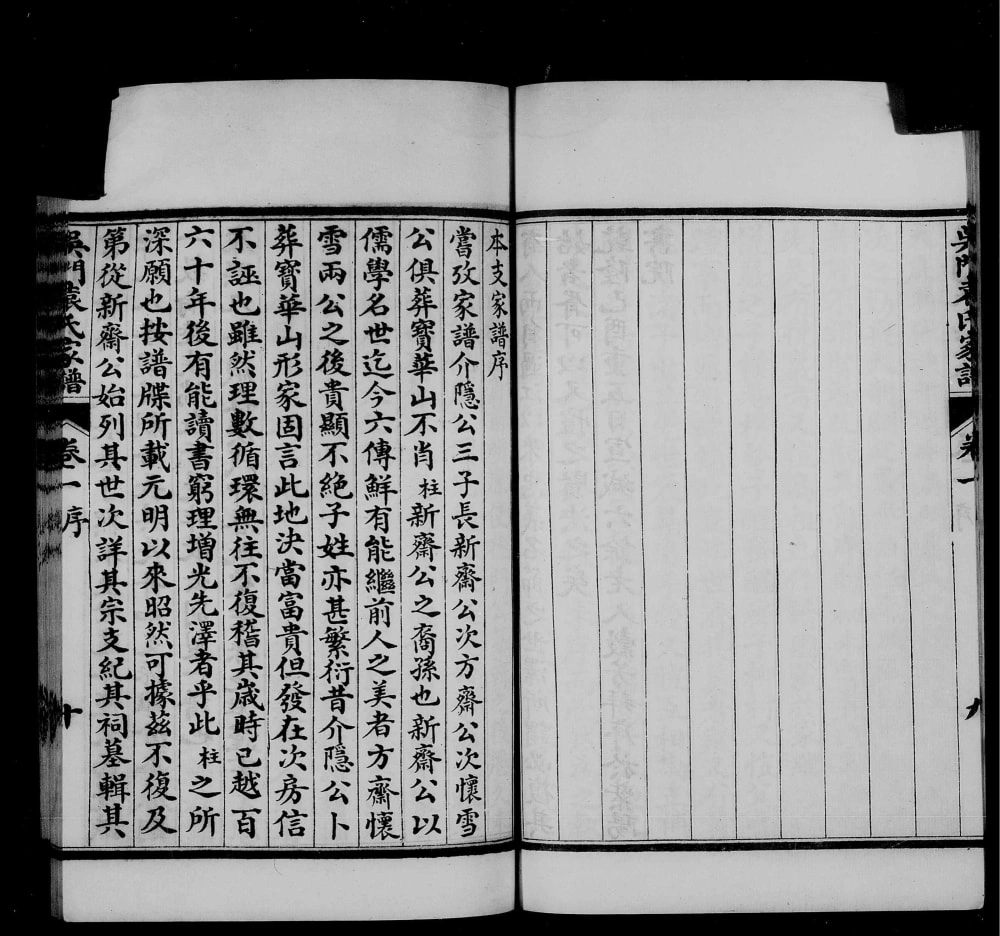 吳門袁氏家譜 卷一 序 九
本支家譜序
嘗攷家譜介隱公三子長新齋公次方齋公次懷雪
公俱葬寶華山不肖柱新齋公之裔孫也新齋公以
儒學名世迄今六傳鮮有能繼前人之美者方齋懷
雪兩公之後貴顯不絕子姓亦甚繁衍昔介隱公卜
葬寶華山形家固言此地決當富貴但發在次房信
不誣也雖然理數循環無往不復稽其歲時已越百
六十年後有能讀書窮理增光先澤者乎此柱之所
深願也按譜牒所載元明以來昭然可據茲不復及
第從新齋公始列其世次詳其宗支紀其祠墓輯其
吳門袁氏家譜 卷一 序 十